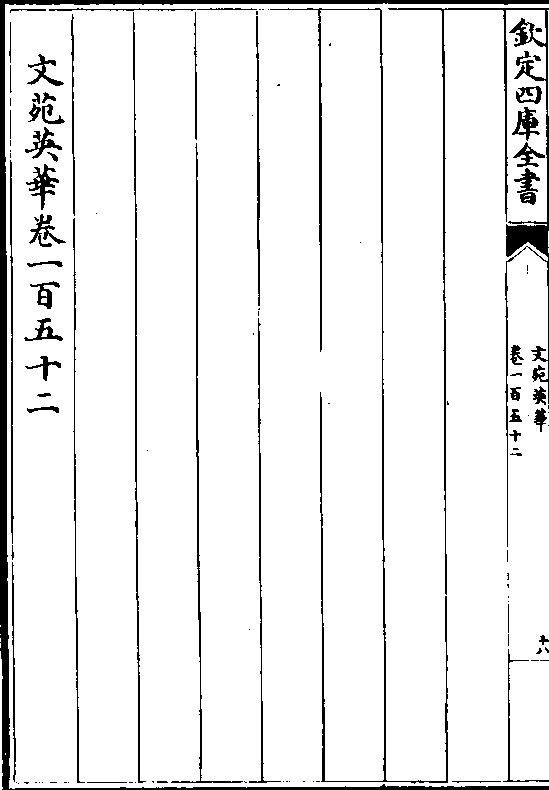 欽定四庫全書
文苑英華
卷一百五十二
十八
文苑英華卷一百五十二